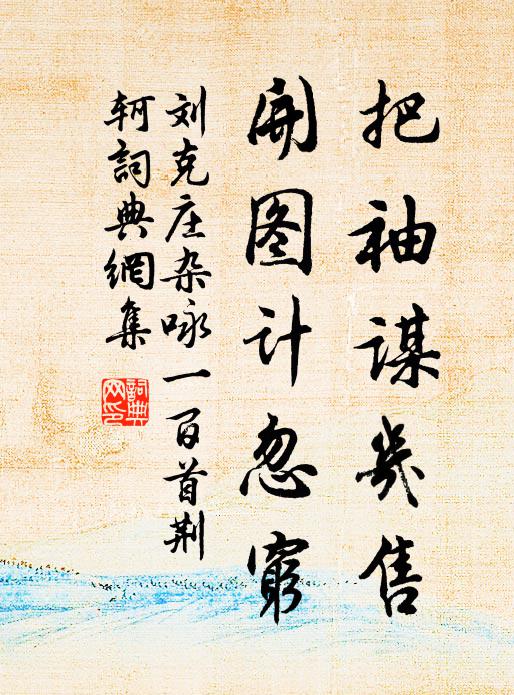 把袖谋几售
开图计忽穷
刘克庄杂咏一百首荆
轲词典網集
詞典
网印